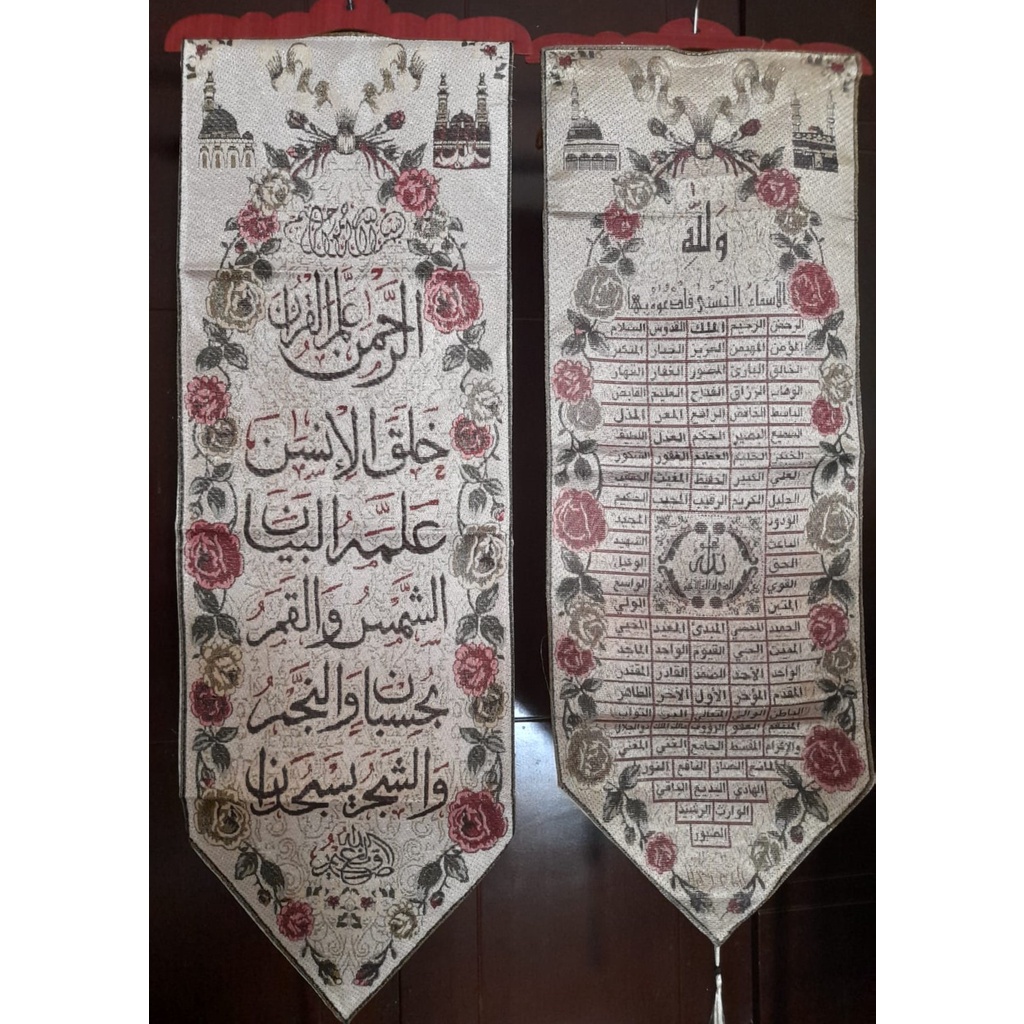 بسم الله الرحمن الرحيم
الرحمن علم القران
خلق الإنسن
علمه البيان
الشمس والقمر
بحسبان والنجم
والشجر يسجدان
ولله
الأسماء الحسنى فادعوه بها
الرحمن الرحيم الملك القدوس السلام
المؤمن المهيمن العزيز الجبار المتكبر
الخالق البارئ المصور الغفار القهار
الوهاب الرزاق الفتاح العليم القابض
الباسط الخافض الرافع المعز المذل
السميع البصير الحكم العدل اللطيف
الخبير الحليم العظيم الغفور الشكور
العلي الكبير الحفيظ المغيث الحسيب
الجليل الكريم الرقيب المجيب الحكيم
الودود المجيد
الباعث الشهيد
الله
الحق الوكيل
القوي الواسع
المتين الولي
الحميد المحصي المبدئ المعيد المحيي
المميت الحي القيوم الواجد الماجد
الواحد الأحد الصمد القادر المقتدر
المقدم المؤخر الأول الآخر الظاهر
الباطن الوالي المتعالي البر التواب
المنتقم العفو الرؤوف
والإكرام المقسط الجامع الغني المغني
المانع الضار النافع النور
الهادي البديع الباقي
الوارث الرشيد
الصبور